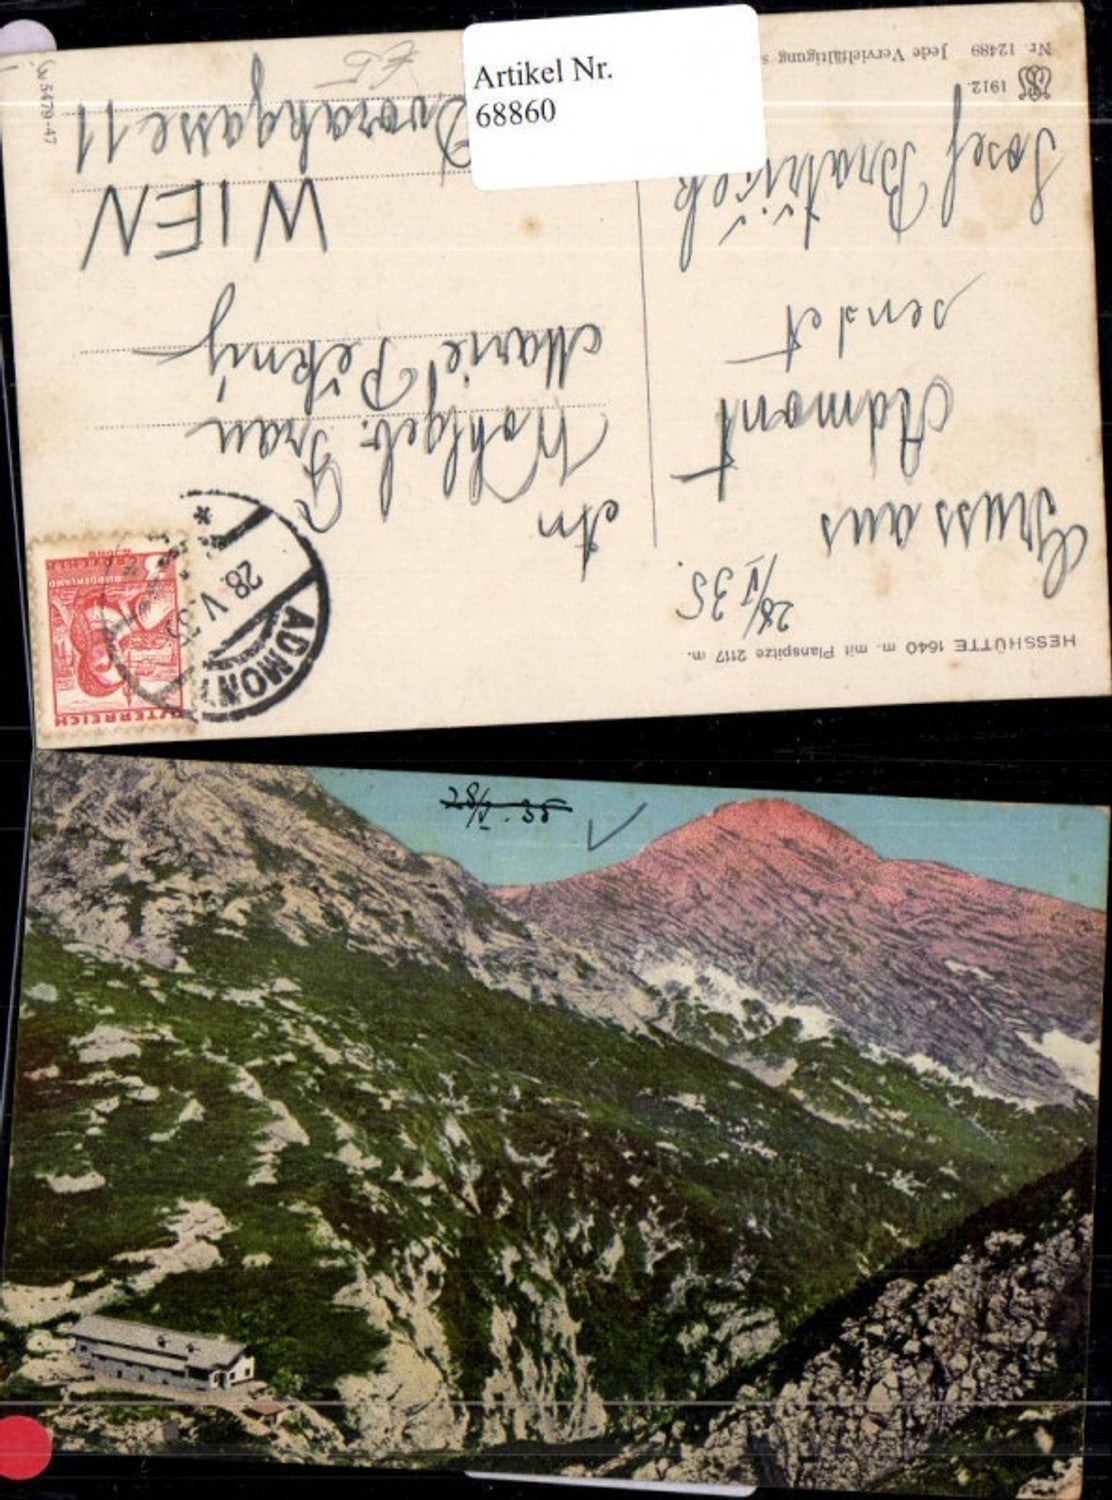 Artikel Nr.
68860
HESSHÜTTE 1640 m. mit Planspitze 2117 m.
28/V 35.
Gruss aus
Admont
sendet
Josef
1912.
Nr 12489 Jede Vervielfältigung s
ÖSTERREICH
BURGENLAND
ADMONT
28. V. 35
An
Wohlgeb. Frau
Marie Pěkný
WIEN
Dvorakgasse 11
5479-47
28/V. 35